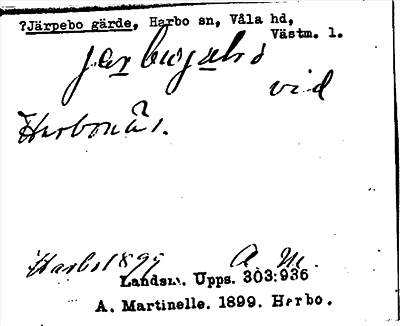 ?Järpebo gärde, Harbo sn, Våla hd,
Västm. l.
vid
Harbonäs.
Harbo 1899 A. M.
Landsm. Upps. 303:936
A. Martinelle. 1899. Harbo.